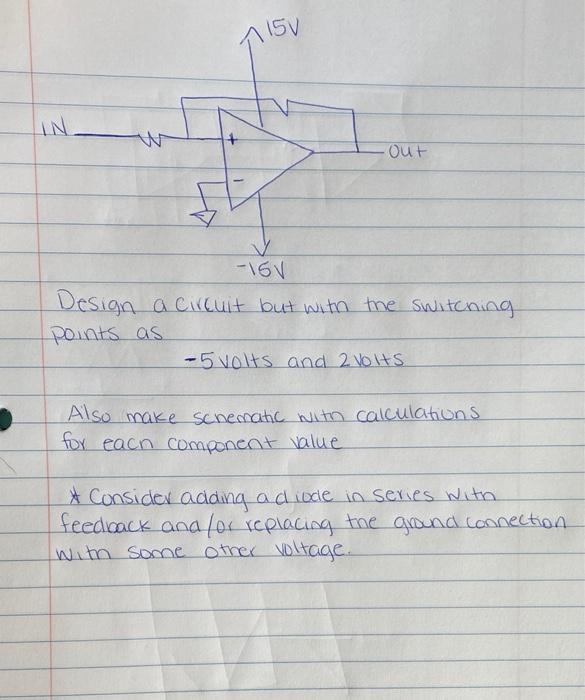 15V
IN
+
-
Out
-15V
Design a circuit but with the switching
points as
-5 volts and 2 volts
Also make schematic with calculations
for each component value
* Consider adding a diode in series with
feedback and/or replacing the ground connection
with some other voltage.